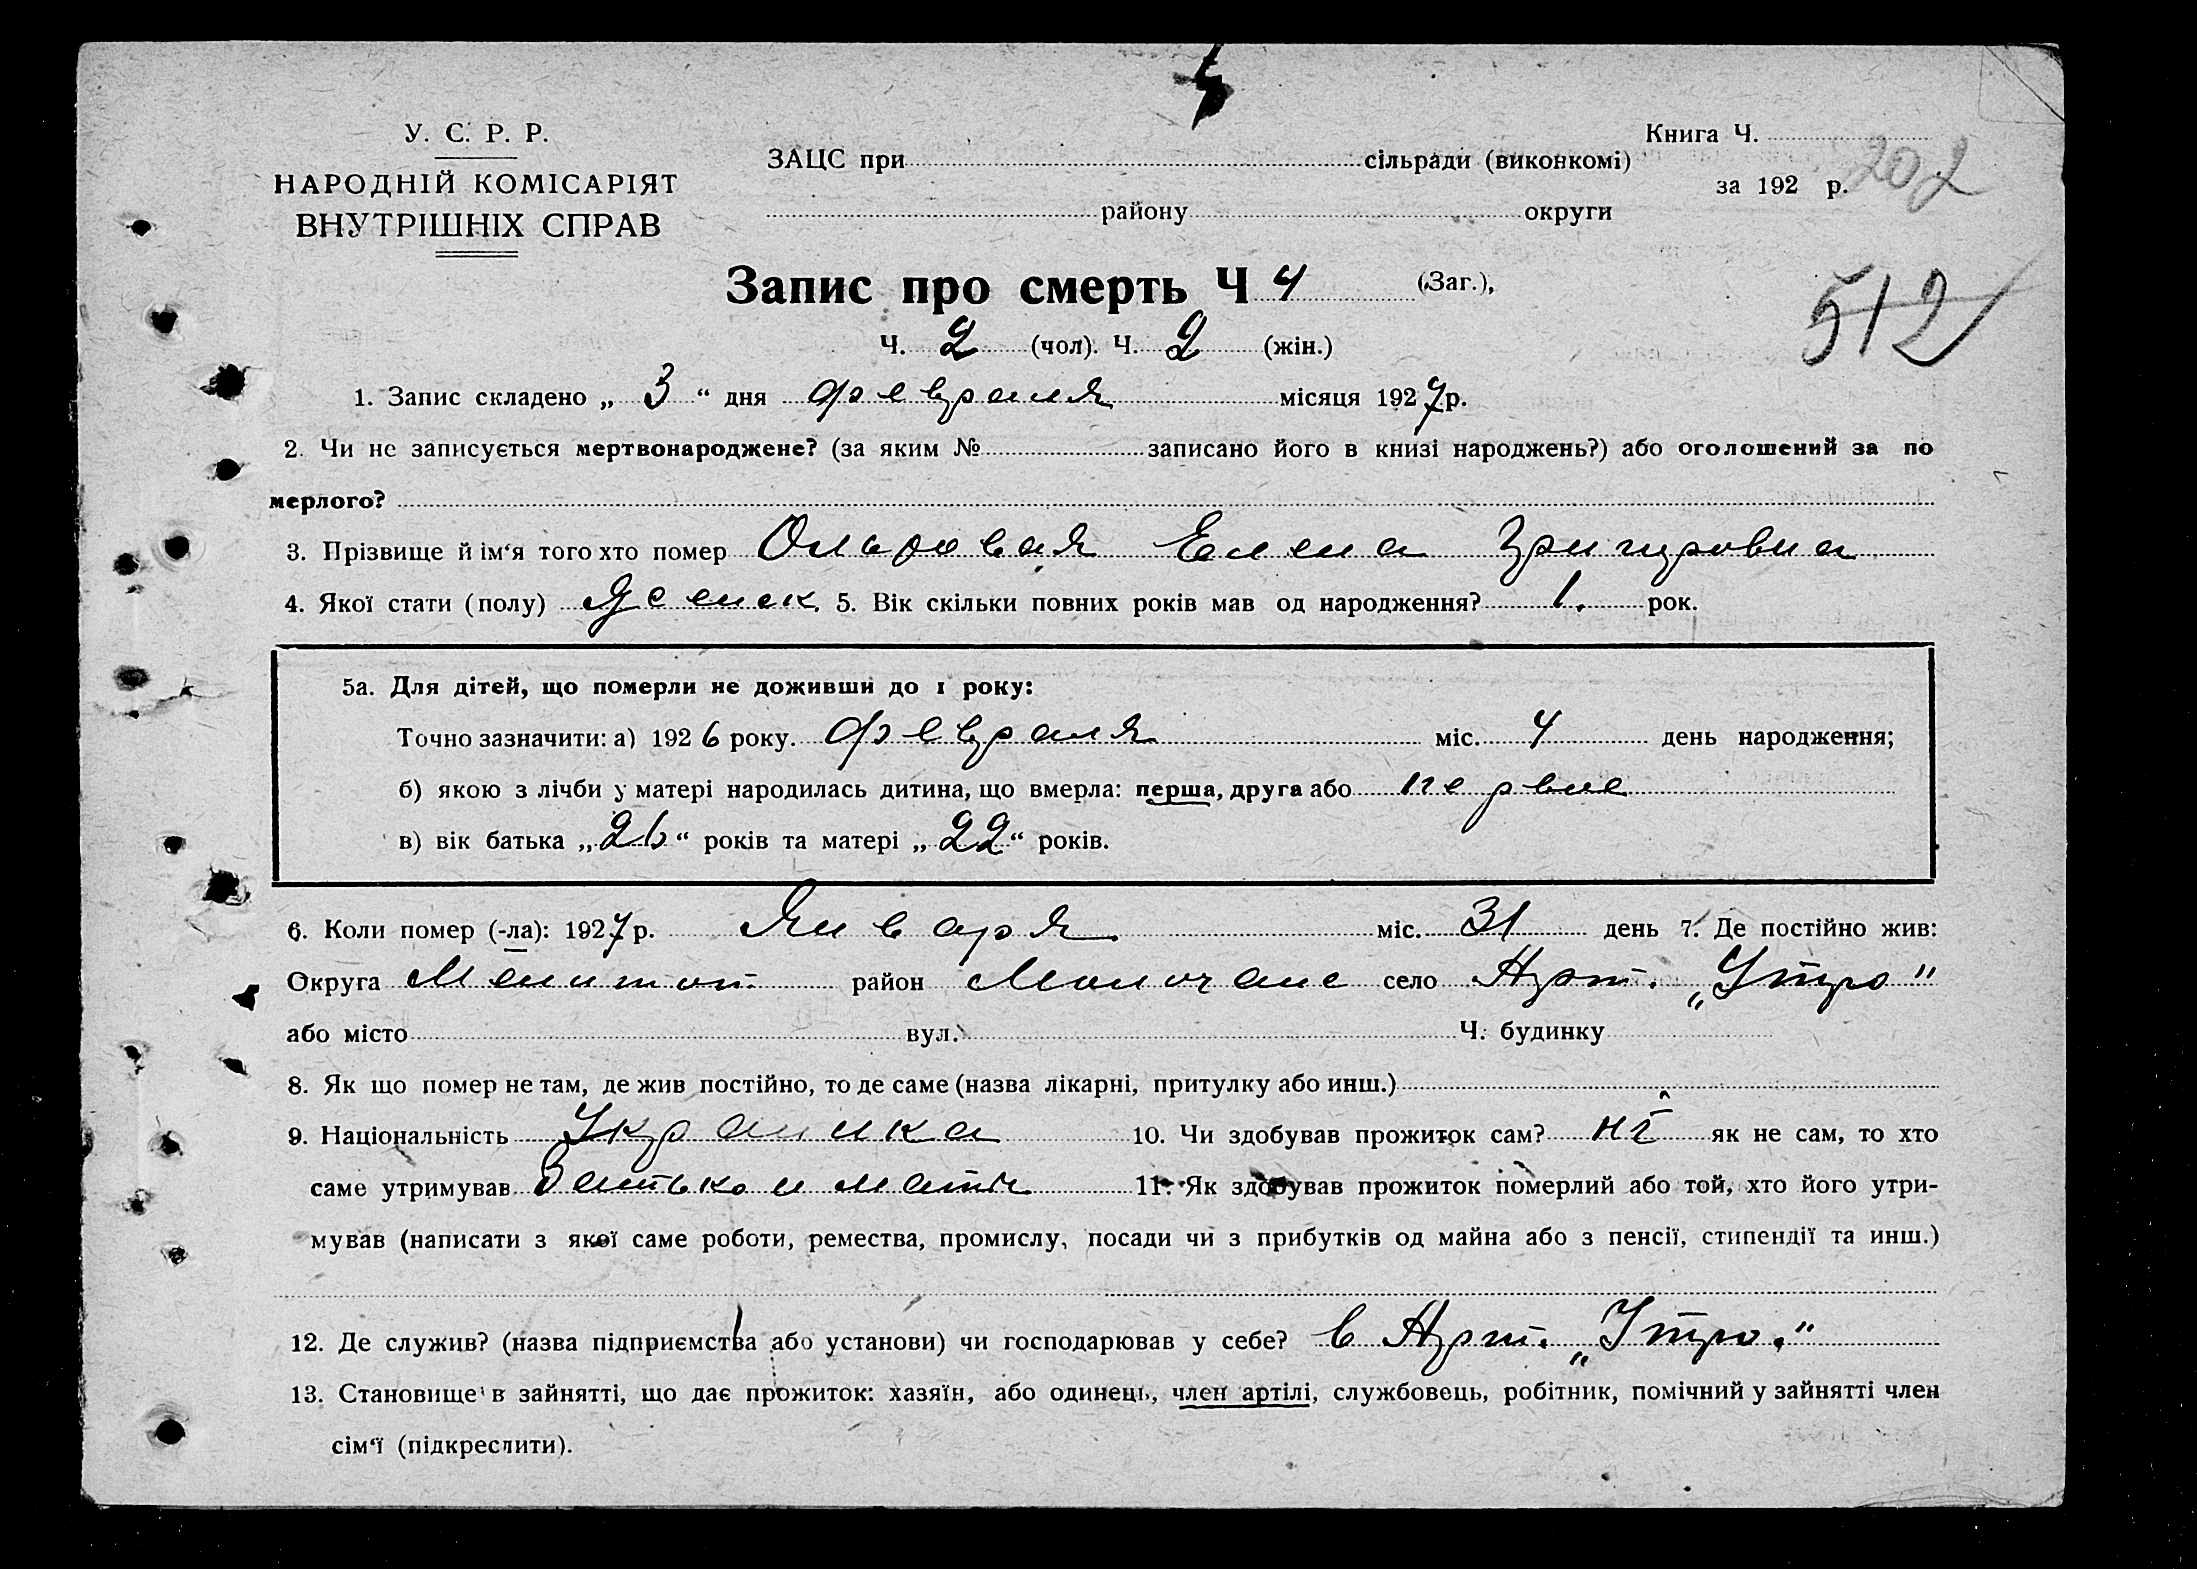 У. С. Р. Р.
НАРОДНІЙ КОМІСАРІЯТ
ВНУТРІШНІХ СПРАВ
ЗАЦС при сільради (виконкомі)
району округи
Книга Ч.
за 192 р.
202
512
Запис про смерть Ч 4 (Заг.),
Ч. 2 (чол). Ч. 2 (жін.)
1. Запис складено „ 3 “ дня февраля місяця 1927 р.
2. Чи не записується мертвонароджене? (за яким № записано його в книзі народжень?) або оголошений за по
мерлого?
3. Прізвище й ім‘я того хто помер Ольровая Елена
4. Якої стати (полу) 5. Вік скільки повних років мав од народження? 1. рок.
5а. Для дітей, що померли не доживши до 1 року:
Точно зазначити: а) 1926 року. февраля міс. 4 день народження;
б) якою з лічби у матері народилась дитина, що вмерла: перша, друга або
в) вік батька „ 26 “ років та матері „ 22 “ років.
6. Коли помер (-ла): 1927 р. Января міс. 31 день 7. Де постійно жив:
Округа Мелитоп. район Молочанс село Арт. „Утро“
або місто вул. Ч. будинку
8. Як що помер не там, де жив постійно, то де саме (назва лікарні, притулку або инш.)
9. Національність Украинка 10. Чи здобував прожиток сам? ні як не сам, то хто
саме утримував Батько и мать 11. Як здобував прожиток померлий або той, хто його утри-
мував (написати з якої саме роботи, ремества, промислу, посади чи з прибутків од майна або з пенсії, стипендії та инш.)
12. Де служив? (назва підприємства або установи) чи господарював у себе? в Арт. „Утро.“
13. Становище в зайнятті, що дає прожиток: хазяїн, або одинець, член артілі, службовець, робітник, помічний у зайнятті член
сім‘ї (підкреслити).